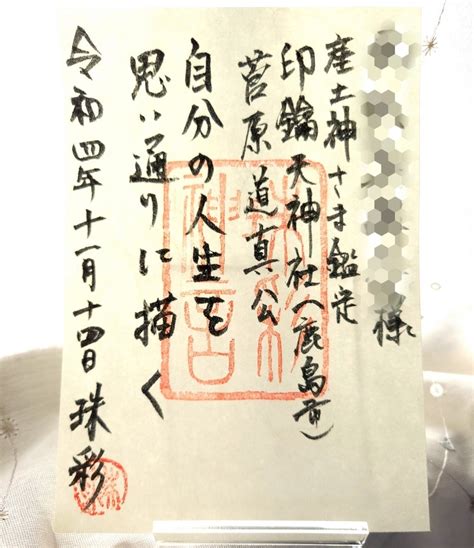 様
産土神さま鑑定
印鑰天神社(鹿島市)
菅原道真公
自分の人生を
思い通りに描く
令和四年十一月十四日 珠彩